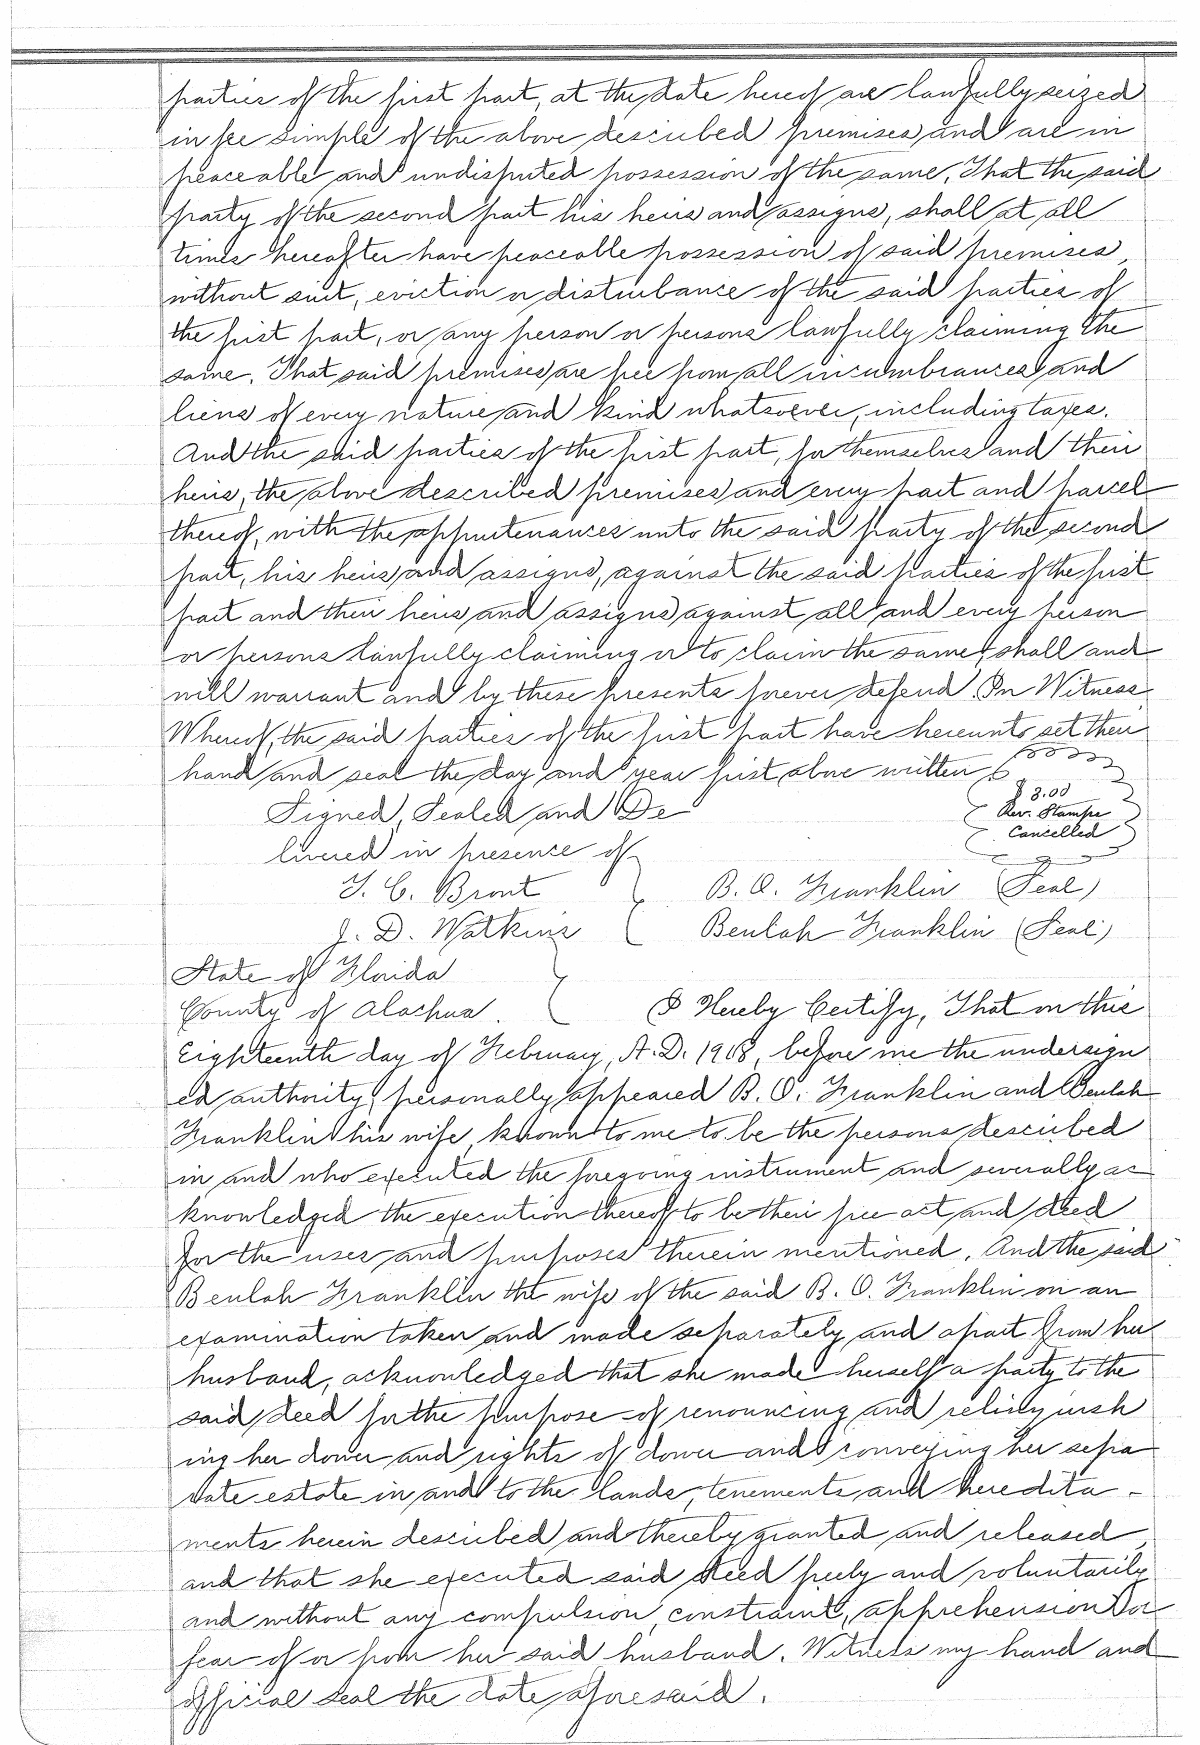 parties of the first part, at the date hereof are lawfully seized
in fee simple of the above described premises, and are in
peaceable and undisputed possession of the same. That the said
party of the second part his heirs and assigns, shall at all
times hereafter have peaceable possession of said premises,
without suit, eviction or disturbance of the said parties of
the first part, or any person or persons lawfully claiming the
same. That said premises are free from all incumbrances and
liens of every nature and kind whatsoever, including taxes.
And the said parties of the first part, for themselves and their
heirs, the above described premises and every part and parcel
thereof, with the appurtenances unto the said party of the second
part, his heirs and assigns, against the said parties of the first
part and their heirs and assigns, against all and every person
or persons lawfully claiming or to claim the same, shall and
will warrant and by these presents forever defend. In Witness
Whereof, the said parties of the first part have hereunto set their
hand and seal the day and year first above written.
$3.00
Rev. Stamps
Cancelled
Signed, Sealed and De
livered in presence of
T. C. Bront B. O. Franklin (Seal)
J. D. Watkins Beulah Franklin (Seal)
State of Florida
County of Alachua. I Hereby Certify, That on this
Eighteenth day of February, A.D. 1918, before me the undersign
ed authority, personally appeared B. O. Franklin and Beulah
Franklin his wife, known to me to be the persons described
in and who executed the foregoing instrument and severally ac
knowledged the execution thereof to be their free act and deed
for the uses and purposes therein mentioned. And the said
Beulah Franklin the wife of the said B. O. Franklin on an
examination taken and made separately and apart from her
husband, acknowledged that she made herself a party to the
said deed for the purpose of renouncing and relinquish
ing her dower and rights of dower and conveying her sepa
rate estate in and to the lands, tenements and heredita-
ments herein described and thereby granted and released,
and that she executed said deed freely and voluntarily
and without any compulsion, constraint, apprehension or
fear of or from her said husband. Witness my hand and
official seal the date aforesaid.